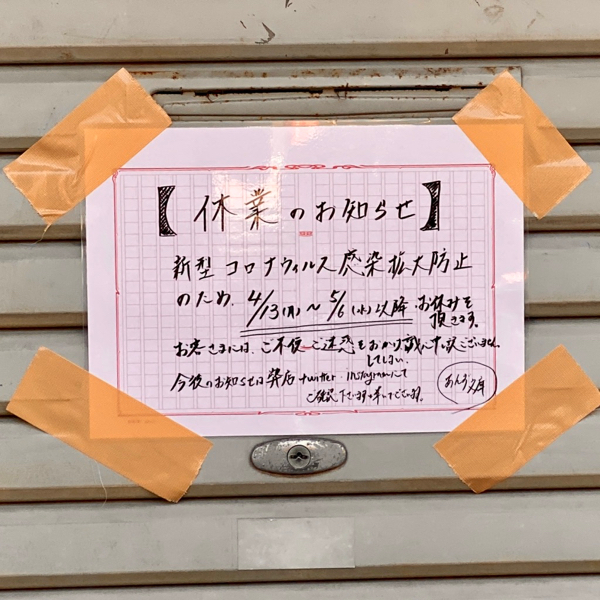 【休業のお知らせ】
新型コロナウィルス感染拡大防止
のため、4/13(月)～5/6(水)以降 お休みを
頂きます。
お客さまには、ご不便ご迷惑をおかけ
してしまい、誠に申し訳ございません。
今後のお知らせは弊店 twitter instagramにて
ご確認下さいます様
あんず